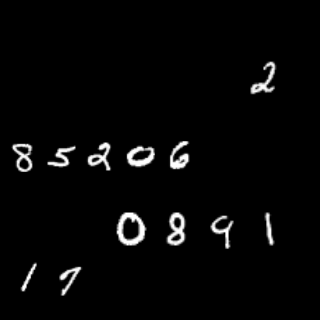 2
85206
0891
17